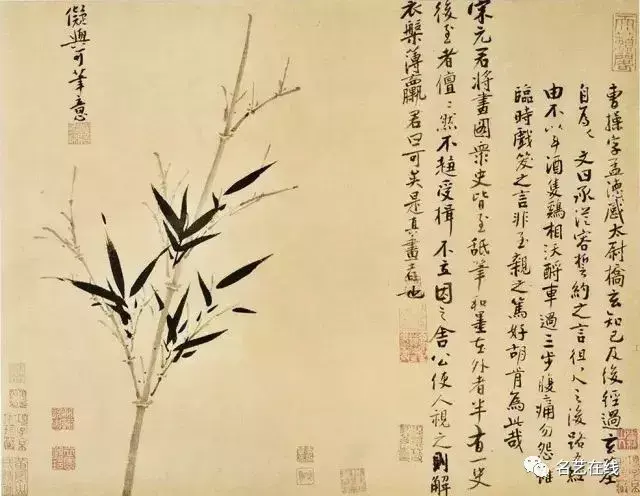 曹操字孟德感太尉橋玄知己及後經過玄墓
自為之文曰承從容誓約之言徂之後路有經
由不以斗酒隻鷄相沃酹車過三步腹痛勿怨雖
臨時戲笑之言非至親之篤好胡肯為此哉
宋元君將畫圖衆史皆至舐筆和墨在外者半有一史
後至者儃〻然不趨受揖不立因之舍公使人視之則解
衣槃薄臝君曰可矣是真畫者也
儗與可筆意
名艺在线